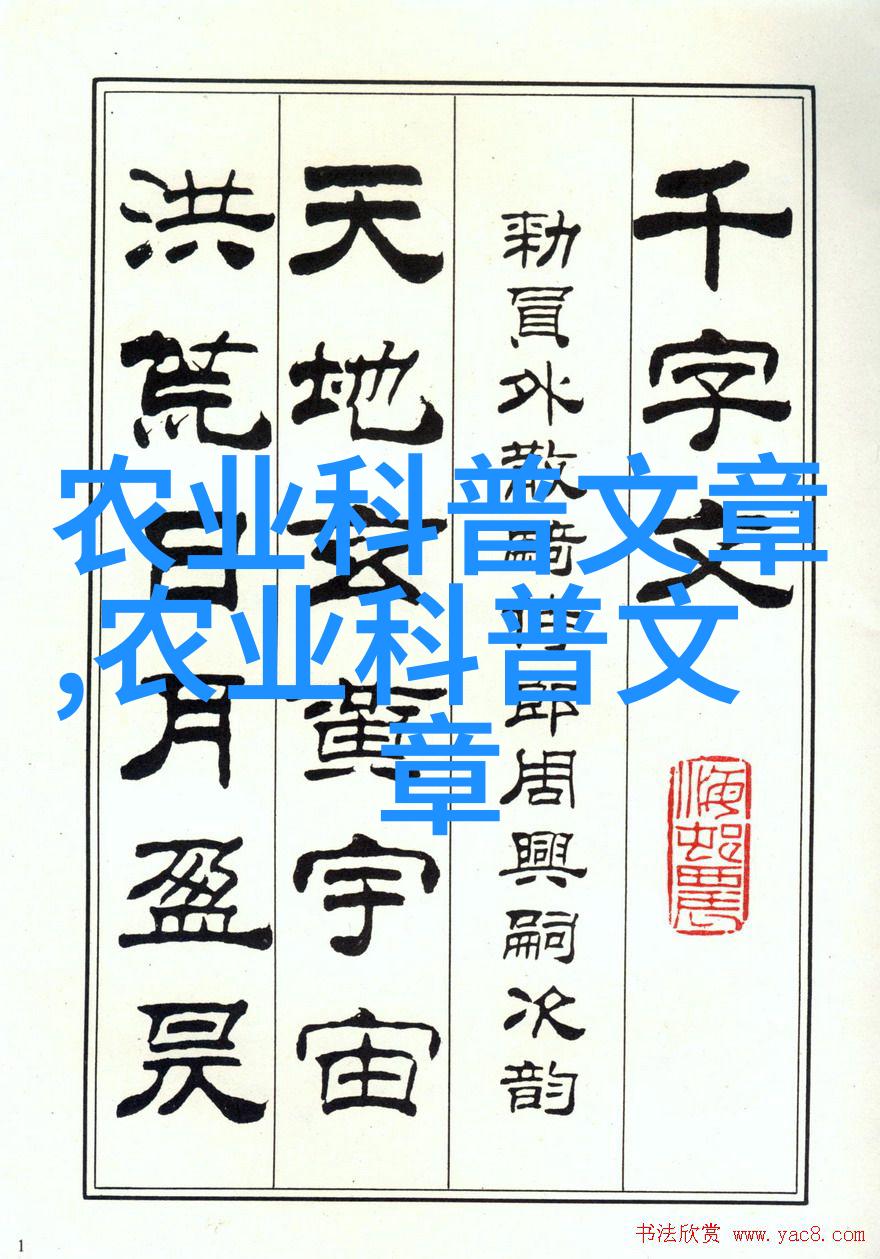 千字文
勑員外散騎侍郎周興嗣次韵
天地玄黃宇宙
洪荒日月盈昃
农业科普文章
,农业科普文
章
1
书法欣赏 www.yac8.com